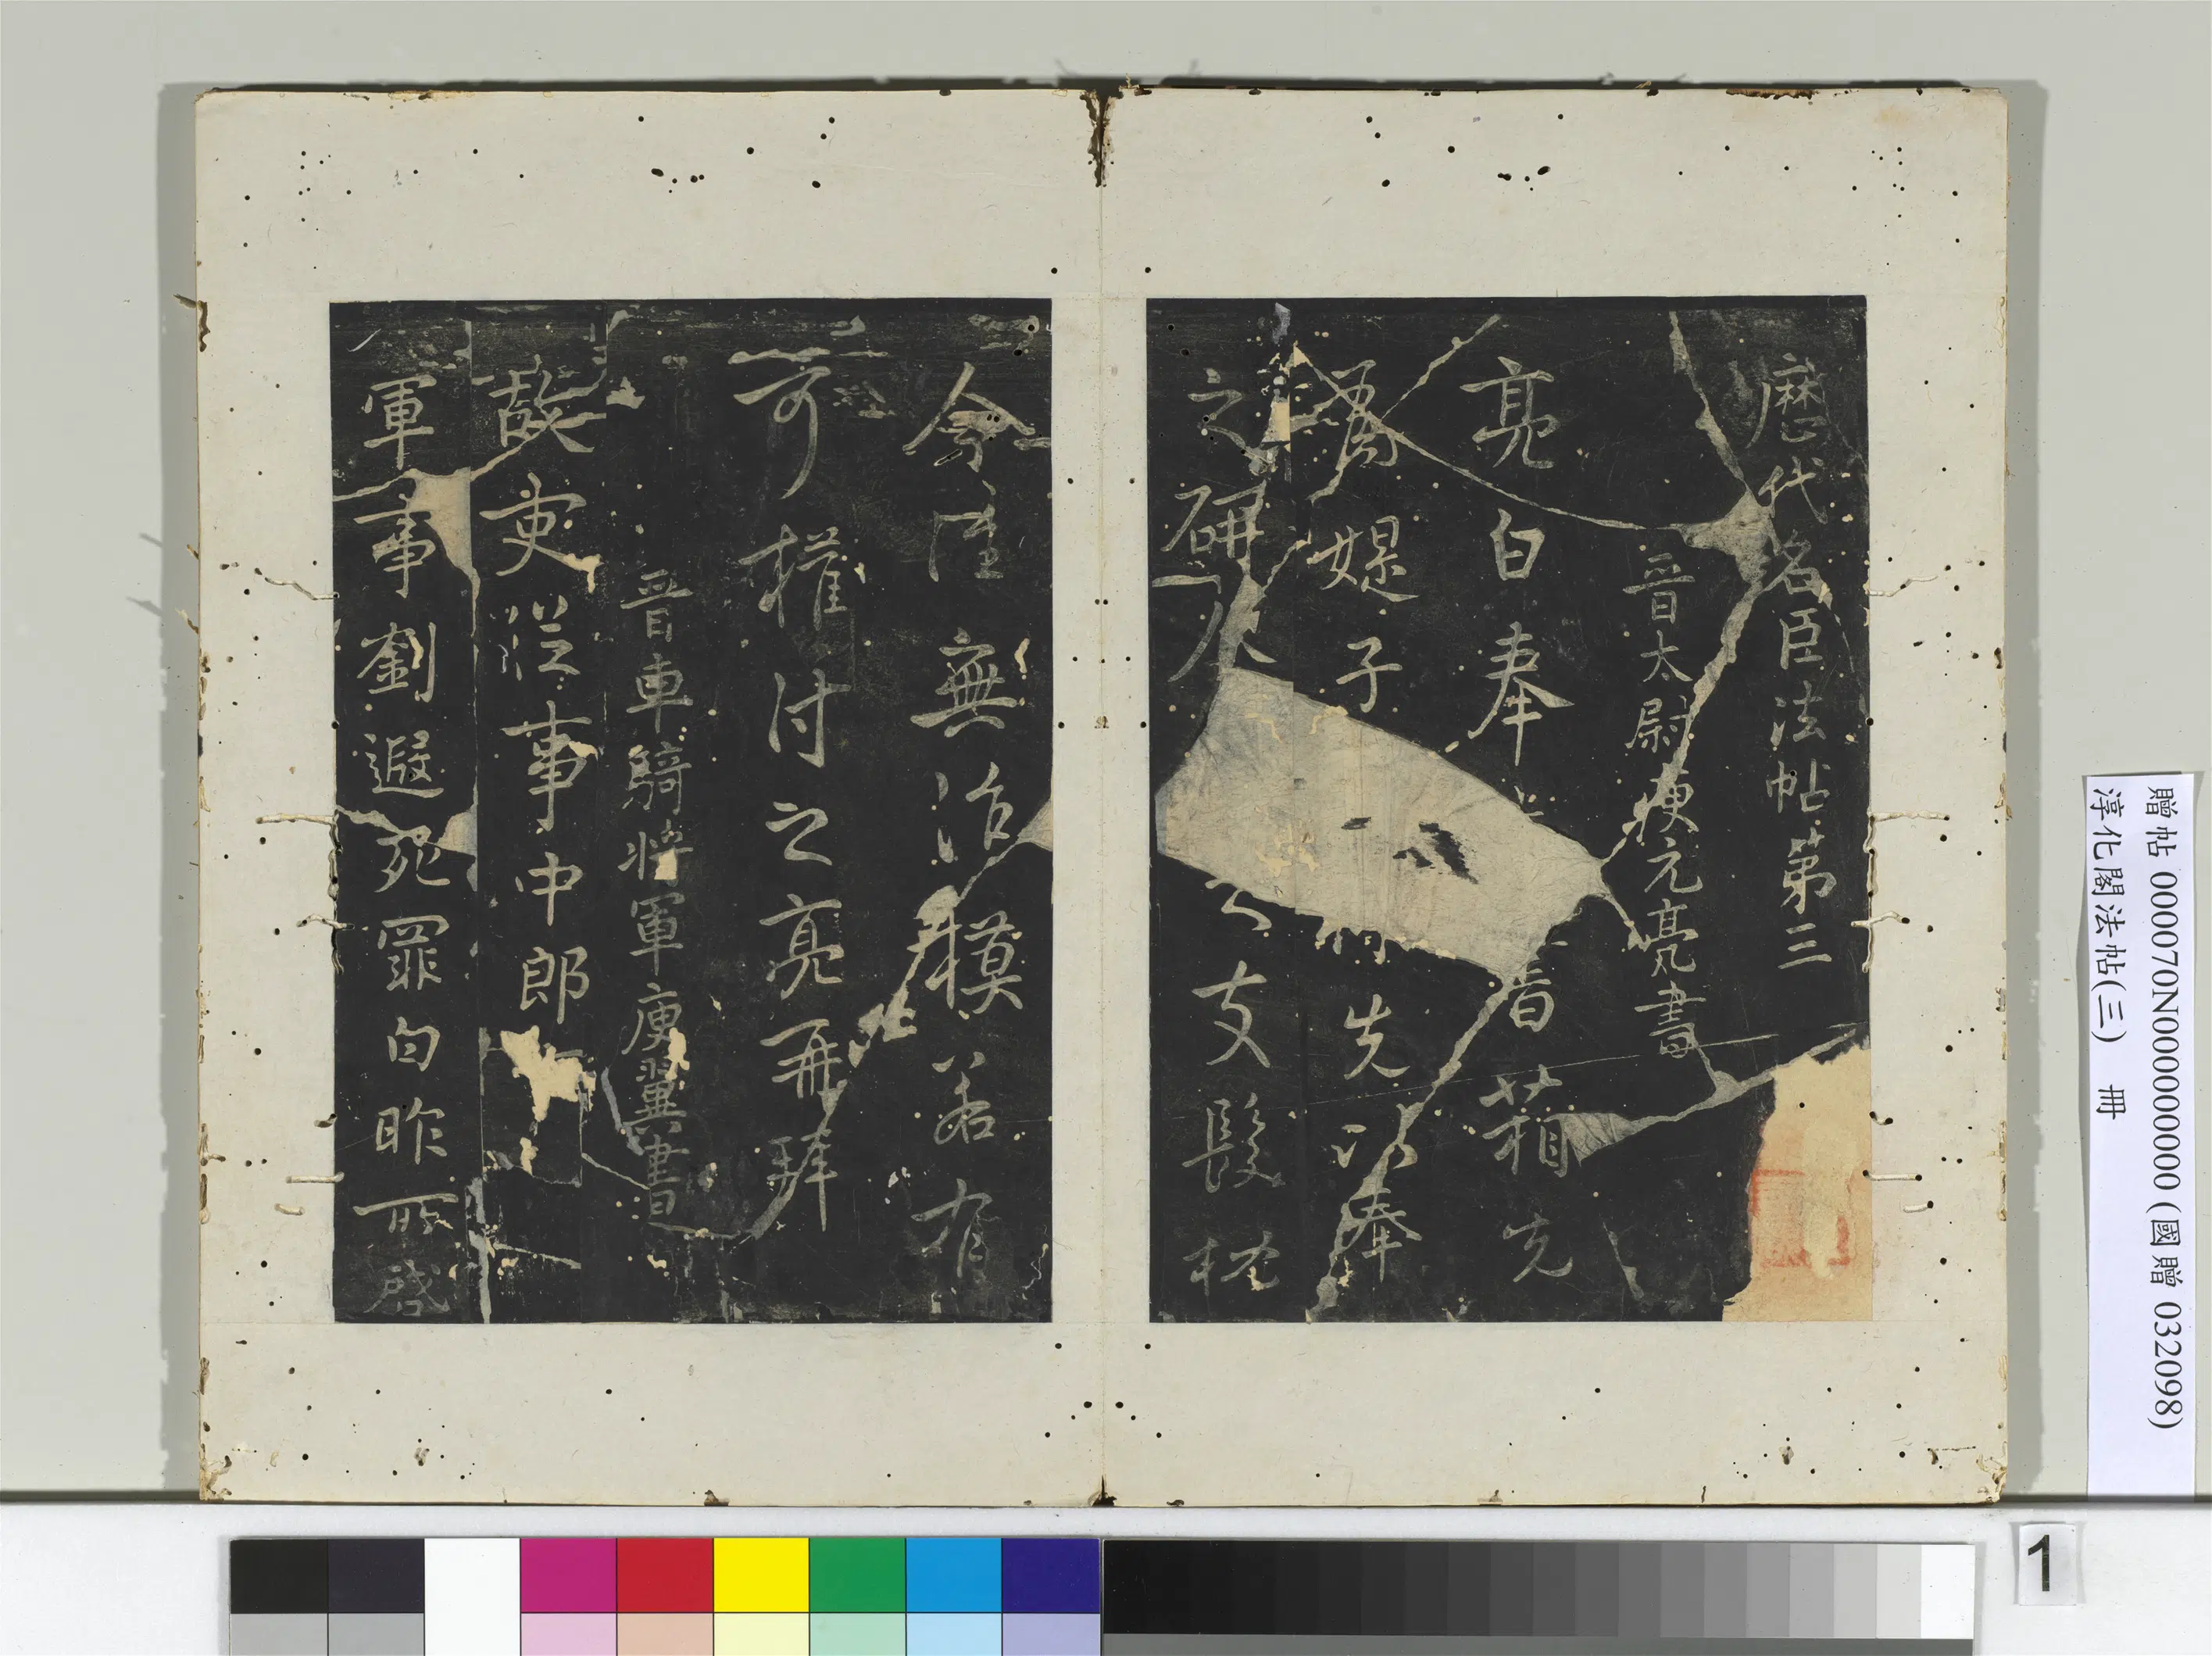 歷代名臣法帖第三
晉太尉庾元亮書
亮白奉 書箱先
媞子 先以奉
之研 支髮枕
今 無 模若有
可權付之亮再拜
晉車騎將軍庾翼書
故吏從事中郎
軍事劉遐死罪白昨所啓
贈帖 000070N000000000 (國贈 032098)
淳化閣法帖(三) 冊
1